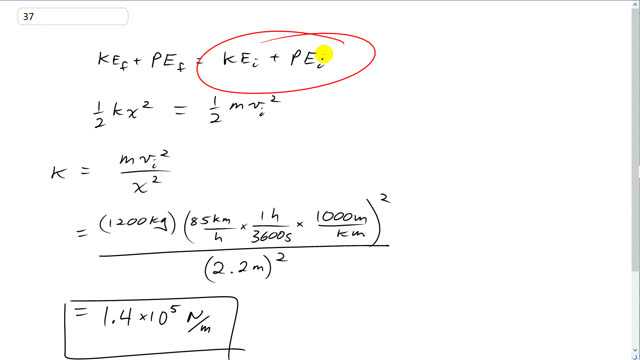 37
KE_f + PE_f = KE_i + PE_i
1/2 kx² = 1/2 mv_i²
K = mv_i² / x²
= (1200kg) (85km/h × 1h/3600s × 1000m/km)² / (2.2m)²
= 1.4 × 10⁵ N/m